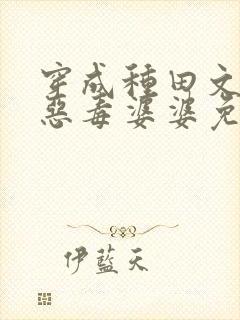 穿成種田文
惡毒婆婆免
伊藍天